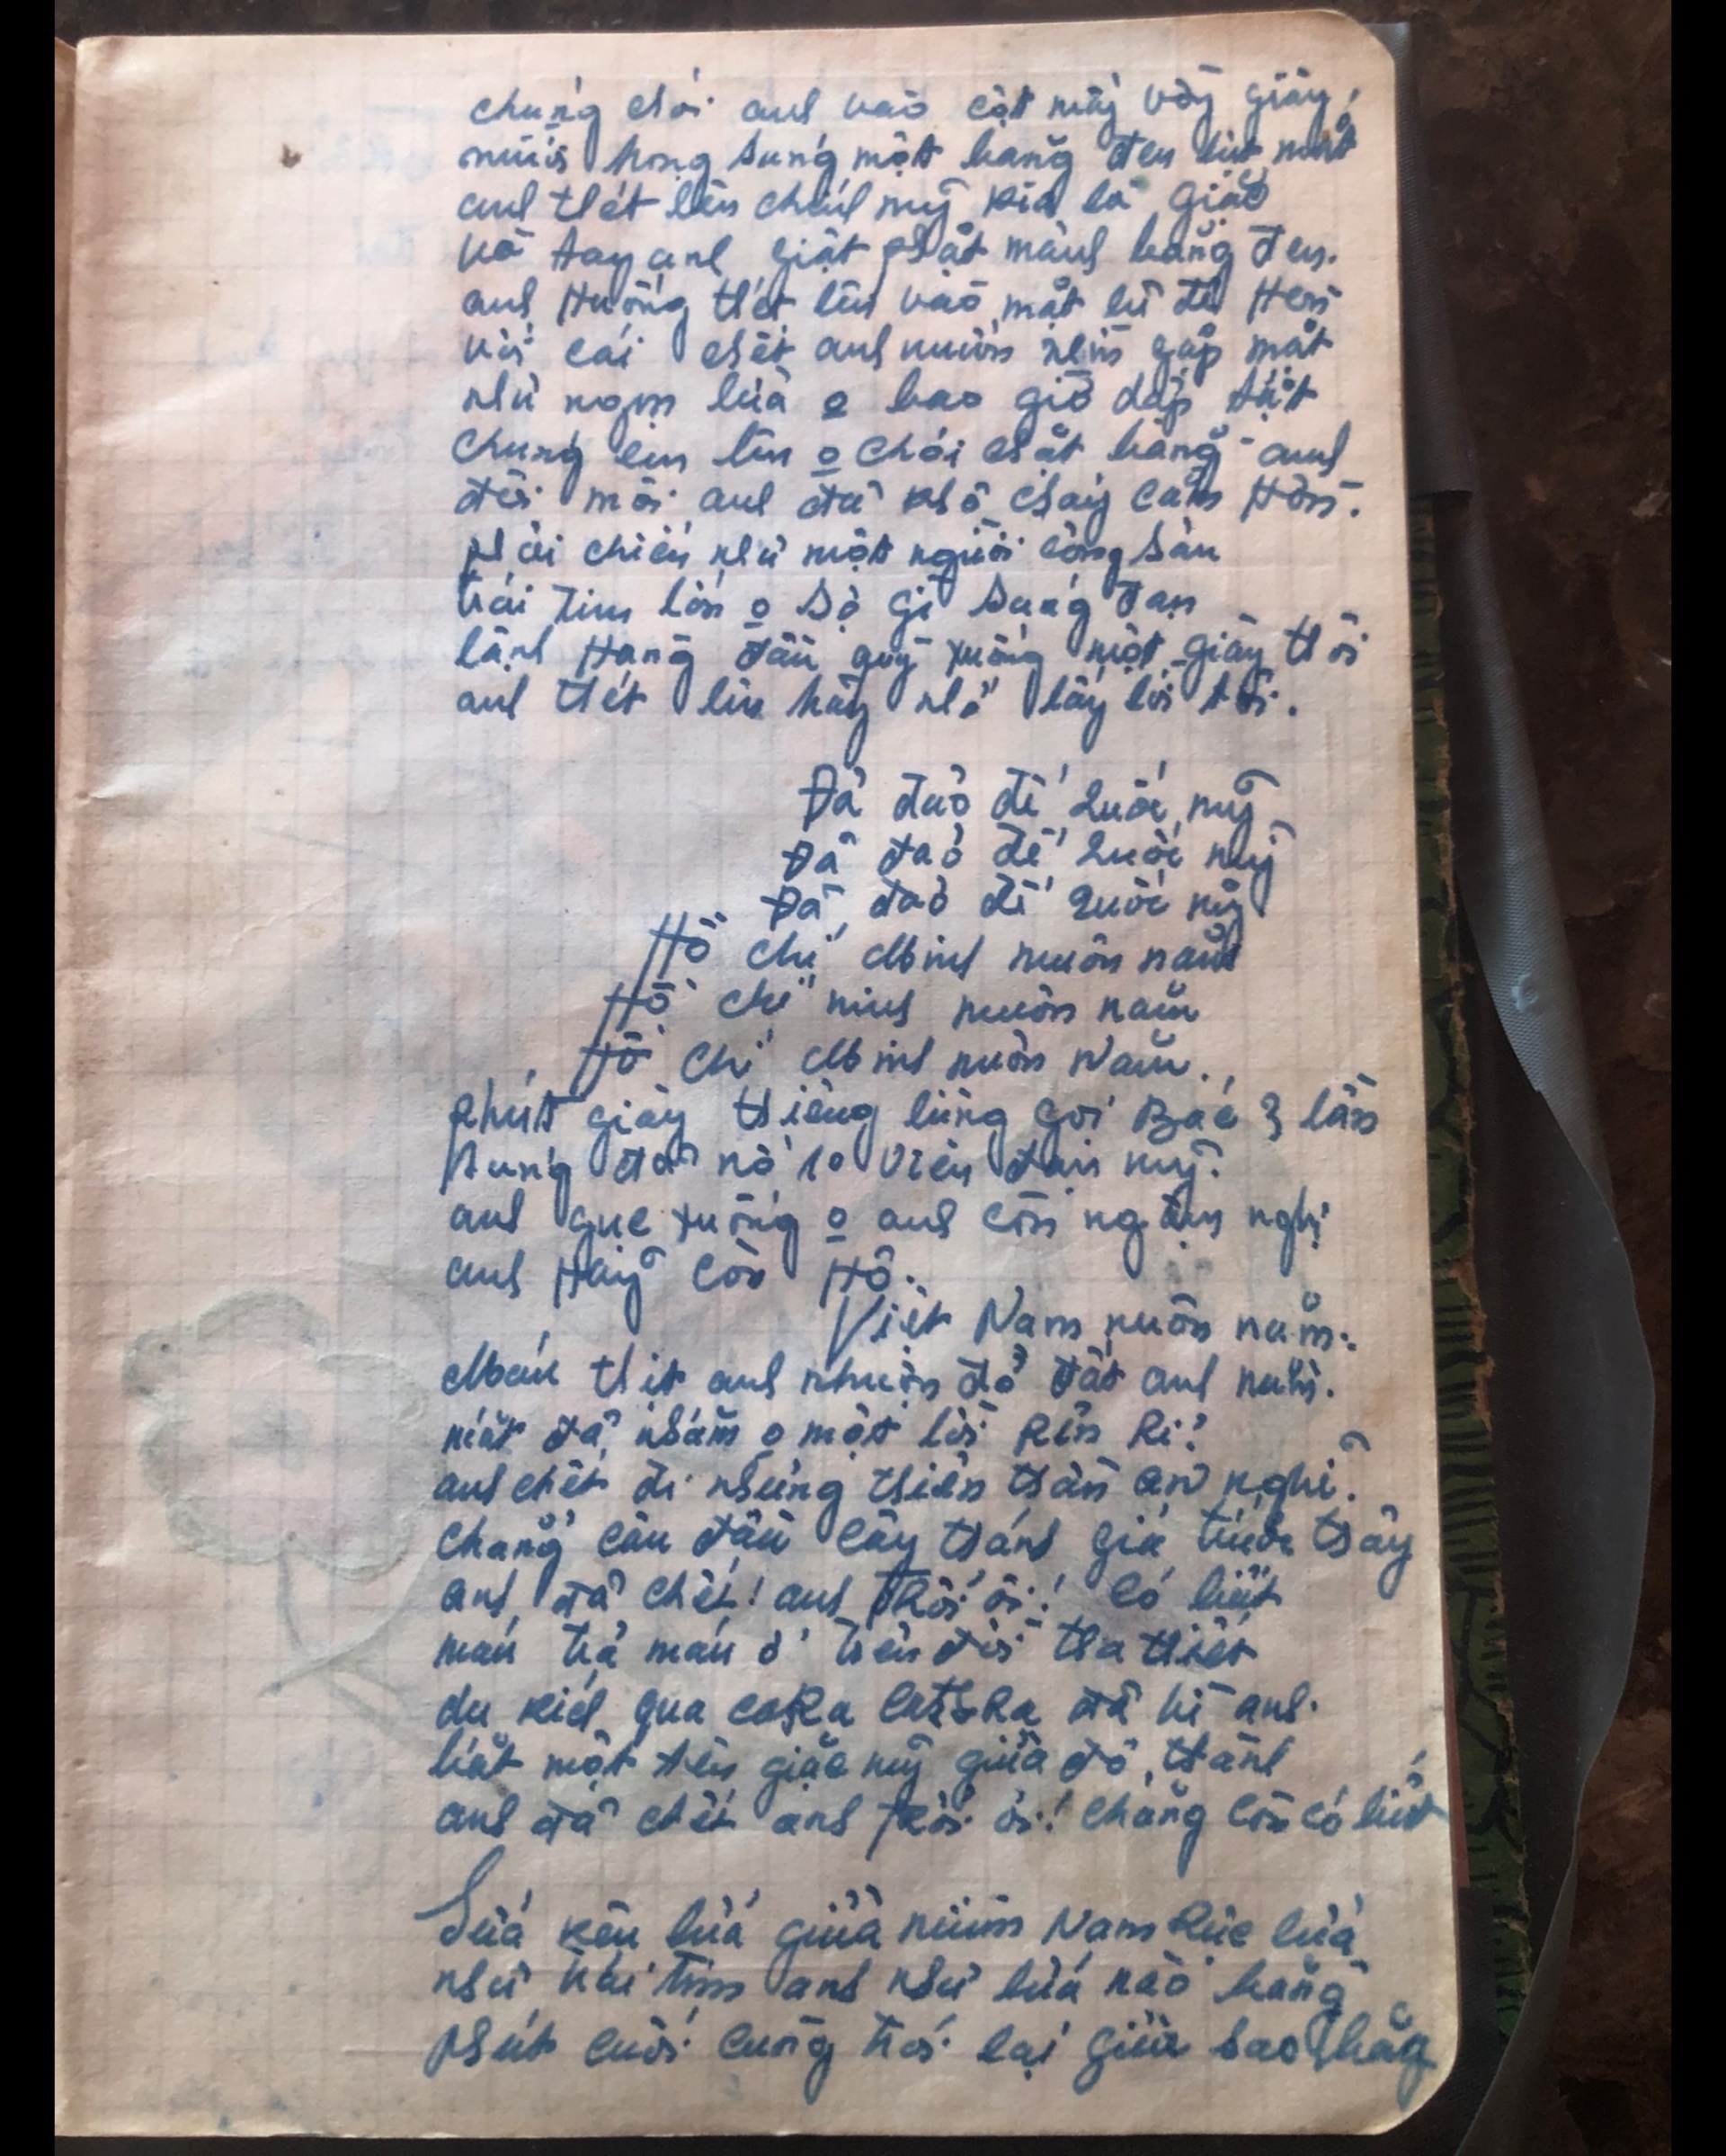 chúng chói anh vào cột mấy vòng giây
mười họng súng một băng đen bịt mắt
anh thét lên chính mỹ kia là giặc
và tay anh giật phắt mảnh băng đen.
anh Hướng thét lên vào mặt lũ đê Hèn
với cái chết anh muốn nhìn gặp mặt
như ngọn lửa o bao giờ dập tắt
chúng em lên o chói chặt bằng anh
đôi môi anh đã khô cháy căm Hờn.
phải chiến như một người cộng sản
trái Tim lớn o sợ gì súng đạn
lệnh Hàng đầu quỳ xuống một giây thôi
anh thét lên hãy nhớ lấy lời tôi.
Đả đảo đế quốc mỹ
Đả đảo đế quốc mỹ
Đả đảo đế quốc mỹ
Hồ chí Minh muôn năm
Hồ chí minh muôn năm
Hồ Chí Minh muôn Năm.
phút giây thiêng liêng gọi Bác 3 lần
súng đã nổ 10 viên đạn mỹ.
anh gục xuống o anh còn ngẩm nghị
anh Hãy còn Hô.
Việt Nam muôn năm.
Máu thịt anh nhuộm đỏ đất anh nằm.
mắt đã nhắm o một lời Rên Rỉ!
anh chết đi những thiên thần an nghỉ.
chẳng cần đâu cây thánh giá trước thây
anh đã chết! anh Trỗi ơi! có biết
máu trả máu ở trên đời tha thiết
du kích qua caRa catska đã vì anh.
bắt một tên giặc mỹ giữa đô thành
anh đã chết anh Trỗi ơi! chẳng còn có biết
Lửa kêu lửa giữa miền Nam Rực lửa
như trái tim anh như lửa nào bằng
phút cuối cùng trói lại giữa bao băng